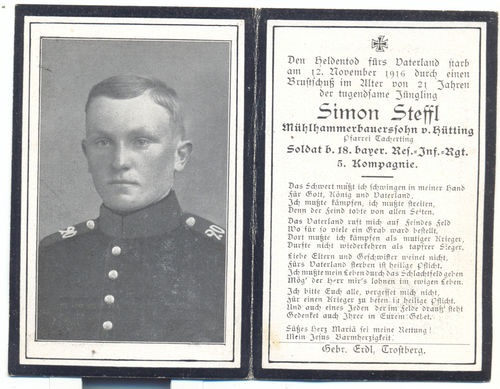 Den Heldentod fürs Vaterland starb
am 12. November 1916 durch einen
Brustschuß im Alter von 21 Jahren
der tugendsame Jüngling
Simon Steffl
Mühlhammerbauerssohn v. Hütting
Pfarrei Tacherting
Soldat b. 18. bayer. Res.-Inf.-Rgt.
5. Kompagnie.
Das Schwert mußt ich schwingen in meiner Hand
Für Gott, König und Vaterland,
Ich mußte kämpfen, ich mußte streiten,
Denn der Feind tobte von allen Seiten.
Das Vaterland ruft mich auf Feindes Feld
Wo für so viele ein Grab ward bestellt.
Dort mußte ich kämpfen als mutiger Krieger,
Durfte nicht wiederkehren als tapfrer Sieger.
Liebe Eltern und Geschwister weinet nicht,
Fürs Vaterland sterben ist heilige Pflicht.
Ich mußte mein Leben durch das Schlachtfeld geben
Mög' der Herr mir's lohnen im ewigen Leben.
Ich bitte Euch alle, vergesset mich nicht,
Für einen Krieger zu beten ist heilige Pflicht.
Und auch eines Jeden der im Felde drauß' steht
Gedenket auch Ihrer in Eurem Gebet.
Süßes Herz Mariä sei meine Rettung!
Mein Jesus Barmherzigkeit.
Gebr. Erdl, Trostberg.
20